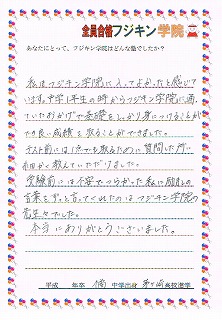 全員合格フジキン学院
あなたにとって、フジキン学院はどんな塾でしたか?
私はフジキン学院に入ってよかったと感じて
います。中学1年生の時からフジキン学院に通っ
ていたおかげで基礎をしっかり身につけることがで
き、良い成績を取ることができました。
テスト前には1点でも取るために質問した所
細かく教えていただけました。
受験前には不安でつらかった私に励ましの
言葉をずっと言ってくれたのはフジキン学院の
先生々でした。
本当にありがとうございました。
平成 年卒 南 中学出身 茅ヶ崎高校進学